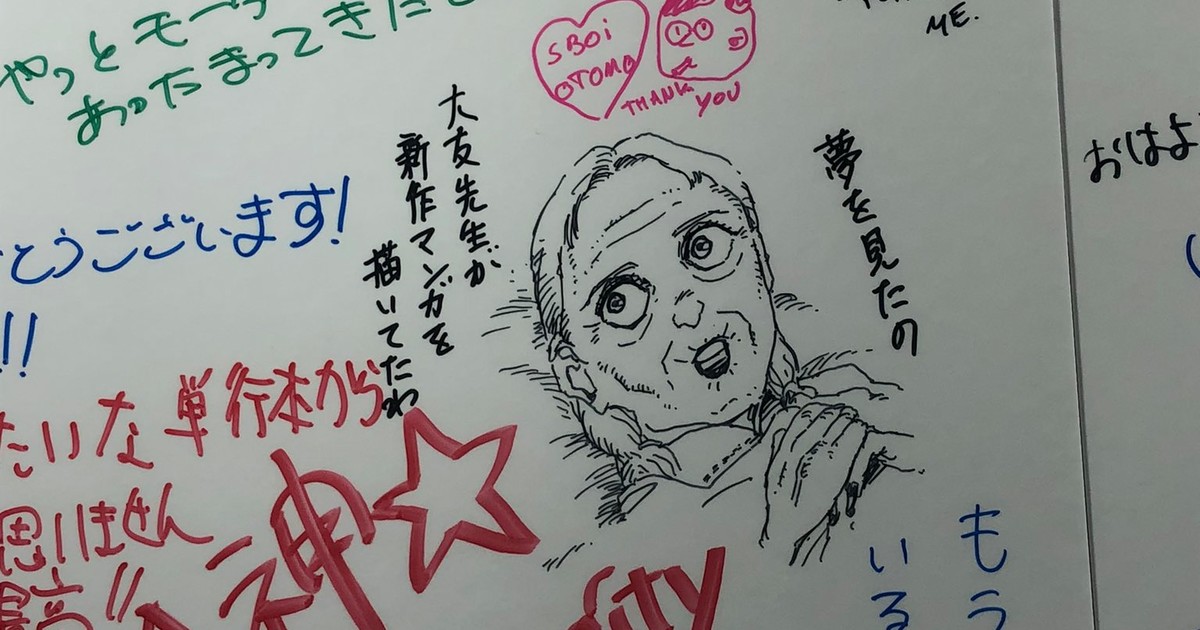 やっとモー
あったまってきた
SBOi
OTOMO
THANK
YOU
ME.
夢を見たの
大友先生が
新作マンガを
描いてたわ
おはよ
とうございます!
!!
たいな単行本から
思いません
最高!!
神☆
ity
もう
いる